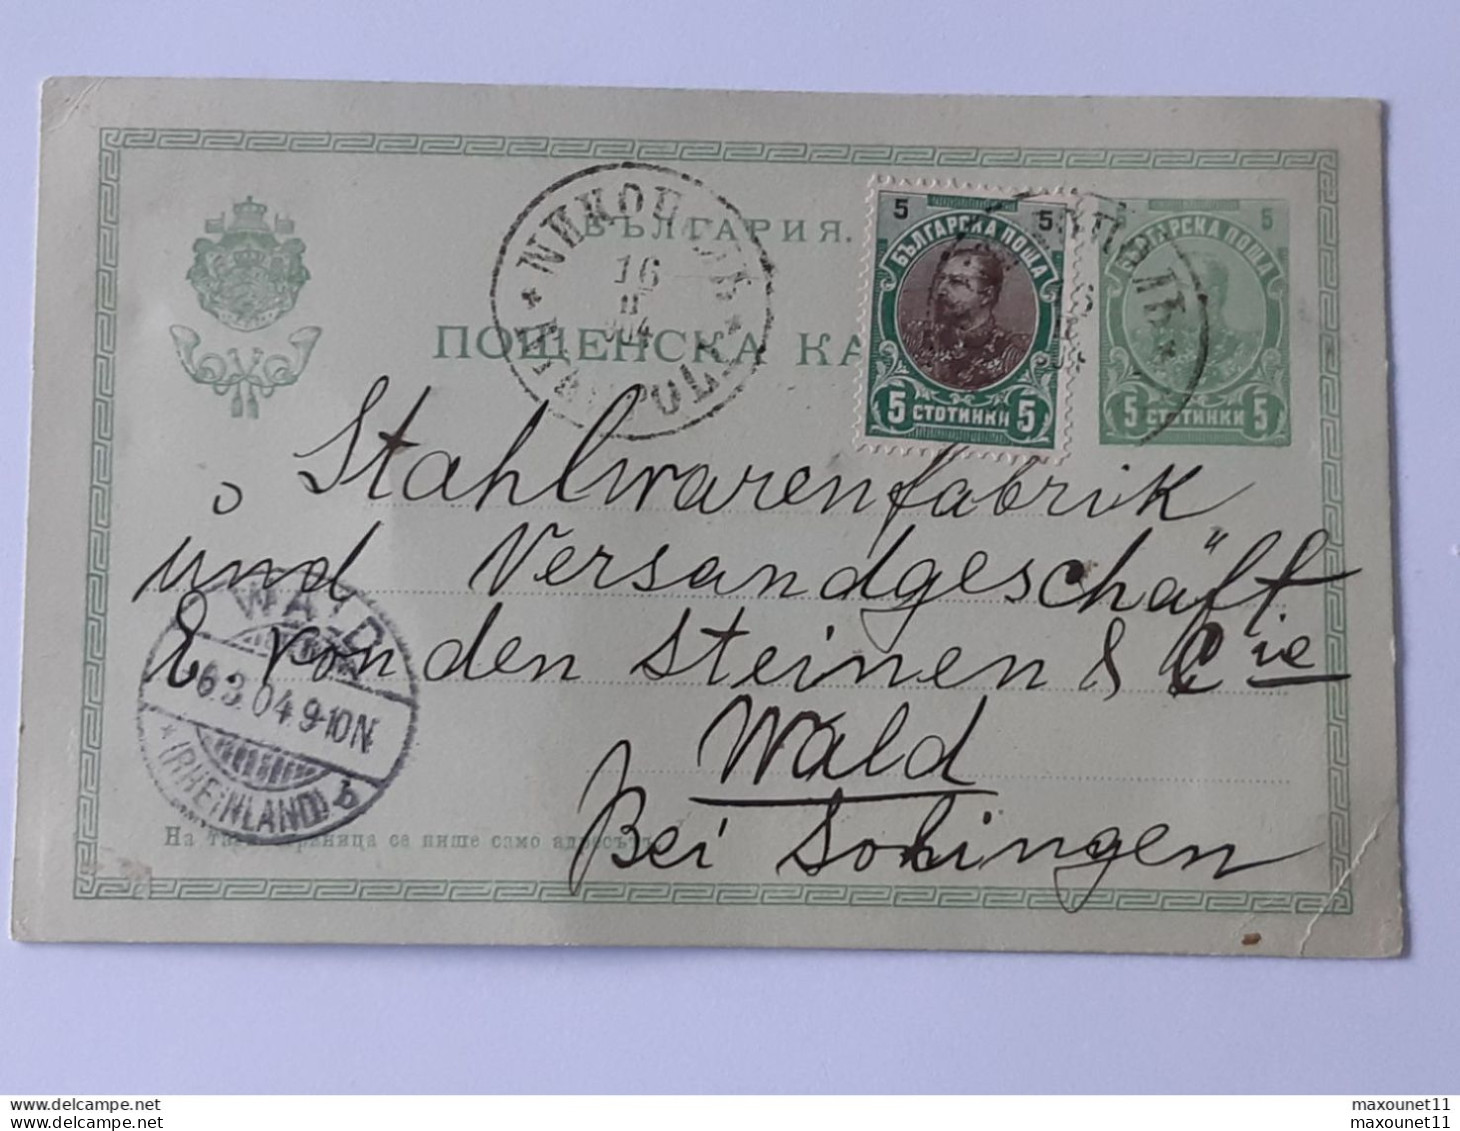 БЪЛГАРИЯ.
ПОЩЕНСКА КА
5 5
БЪЛГАРСКА ПОЩА
5 СТОТИНКИ 5
5
БЪЛГАРСКА ПОЩА
5 СТОТИНКИ 5
НИКОПОЛЪ
16
II
904
Stahlwarenfabrik
und Versandgeschäft
E von den Steinen & Cie
Wald
Bei Solingen
WALD
6.3.04 9-10N
* (RHEINLAND) b
На тази страница се пише само адресътъ
maxounet11
maxounet11
maxounet11
maxounet11